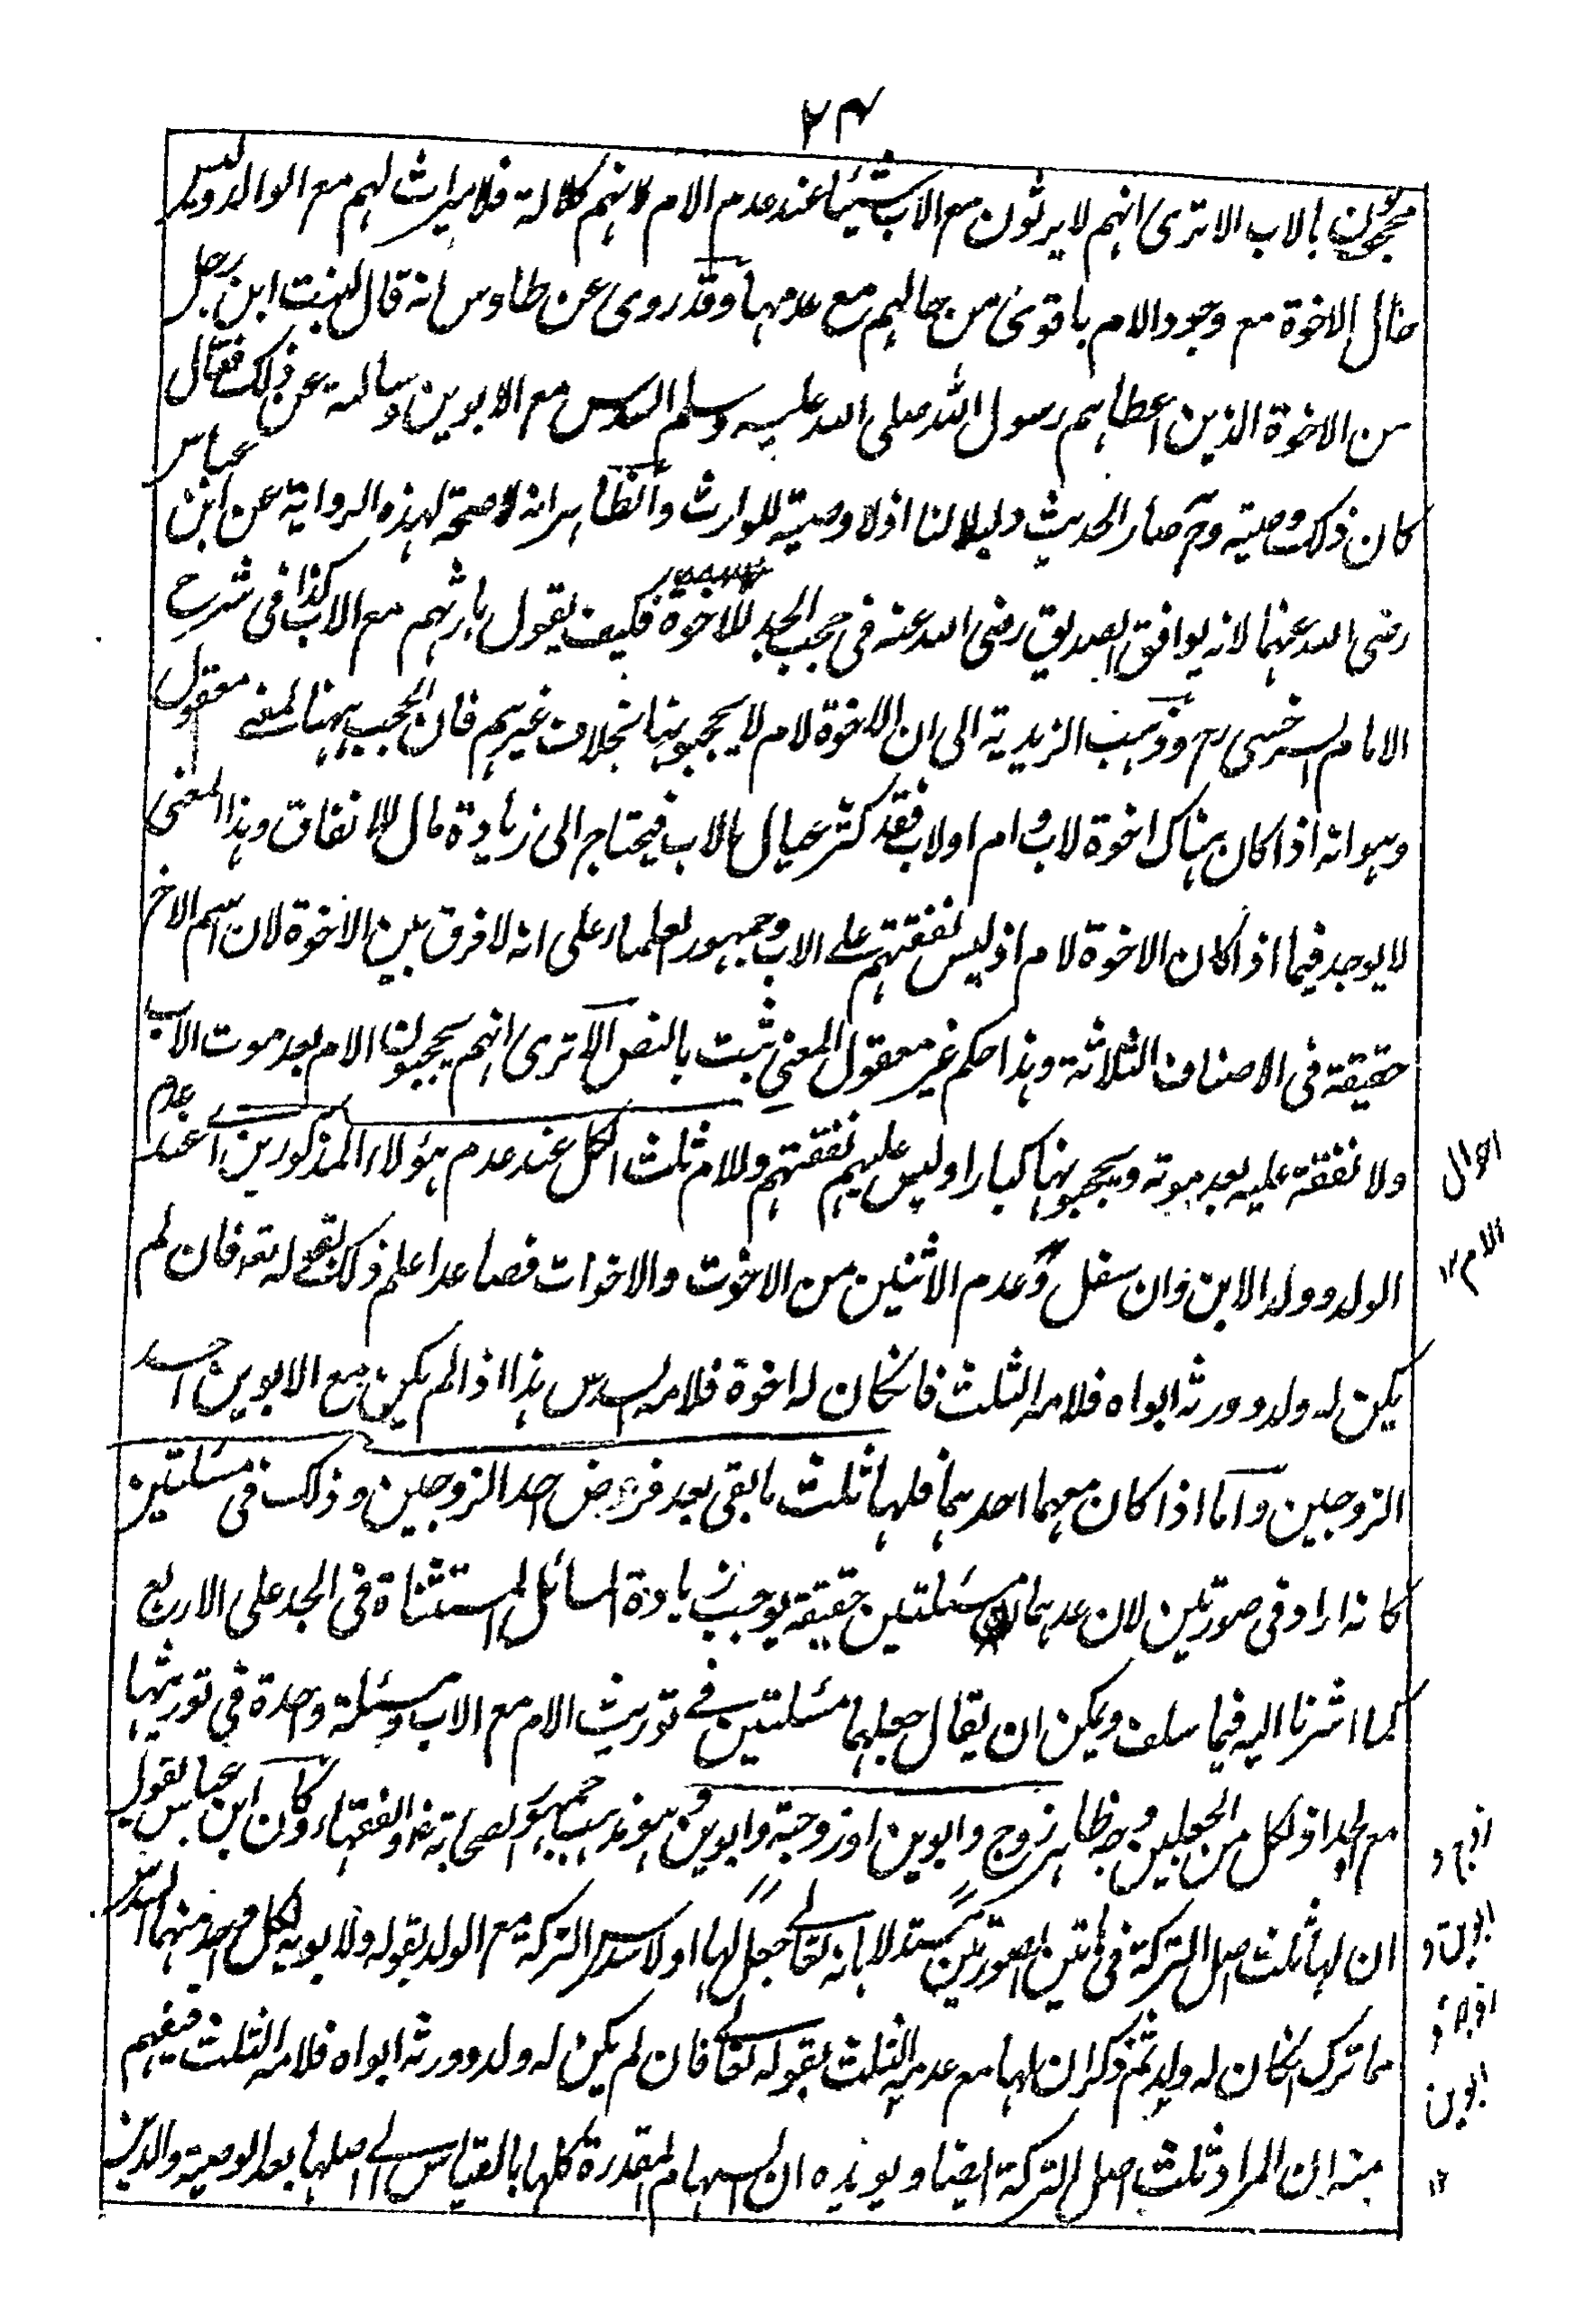 ٢٤
محجوبون بالاب الا ترى انهم لا يرثون مع الاب شيئا عند عدم الام لانهم كلالة فلا ميراث لهم مع الوالد وليس
حال الاخوة مع وجود الام باقوى من حالهم مع عدمها وقد روى عن طاوس انه قال لقيت ابن رجل
من الاخوة الذين اعطاهم رسول الله صلى الله عليه وسلم السدس مع الابوين وسالته عن ذلك فقال
كان ذلك وصية وح صار الحديث دليلا لنا اذ لا وصية للوارث والظاهر انه لا صحة لهذه الرواية عن ابن عباس
رضى الله عنهما لانه يوافق الصديق رضى الله عنه فى حجب الجد للاخوة فكيف يقول بارثهم مع الاب كذا فى شرح
الامام السرخسى رح وذهب الزيدية الى ان الاخوة لام لا يحجبونها بخلاف غيرهم فان الحجب ههنا لمعنى معقول
وهو انه اذا كان هناك اخوة لاب وام او لاب فقد كثر عيال الاب فيحتاج الى زيادة مال للانفاق وهذا المعنى
لا يوجد فيما اذا كان الاخوة لام اذ ليس نفقتهم على الاب وجمهور العلماء على انه لا فرق بين الاخوة لان اسم الاخ
حقيقة فى الاصناف الثلاثة وهذا حكم غير معقول المعنى ثبت بالنص الا ترى انهم يحجبون الام بعد موت الاب
ولا نفقة عليه بعد موته ويحجبونها كبارا وليس عليهم نفقتهم وللام ثلث الكل عند عدم هؤلاء المذكورين اى عند عدم
الولد وولد الابن وان سفل وعدم الاثنين من الاخوت والاخوات فصاعدا علم ذلك بقوله تعه فان لم
يكن له ولد وورثه ابواه فلامه الثلث فانكان له اخوة فلامه السدس هذا اذا لم يكن مع الابوين احد
الزوجين واما اذا كان معهما احدهما فلها ثلث ما بقى بعد فرض احد الزوجين وذلك فى مسئلتين
كانه اراد فى صورتين لان عدهما مسئلتين حقيقة يوجب زيادة المسائل المستثناة فى الجد على الاربع
كما اشرنا اليه فيما سلف ويمكن ان يقال جعلهما مسئلتين فى توريث الام مع الاب ومسئلة واحدة فى توريثها
مع الجد اذ لكل من الجعلين وجه ظاهر زوج وابوين او زوجة وابوين وهو مذهب جمهور الصحابة رض والفقهاء وكان ابن عباس يقول
ان لها ثلث اصل التركة فى هاتين الصورتين مستدلا بانه تعالى جعل لها اولا سدس التركة مع الولد بقوله ولابويه لكل واحد منهما السدس
مما ترك انكان له ولد ثم ذكر ان لها مع عدمه الثلث بقوله تعالى فان لم يكن له ولد وورثه ابواه فلامه الثلث فيفهم
منه ان المراد ثلث اصل التركة ايضا ويويده ان السهام المقدرة كلها بالقياس الى اصلها بعد الوصية والدين
احوال
الام ١٢
ابوين
١٢